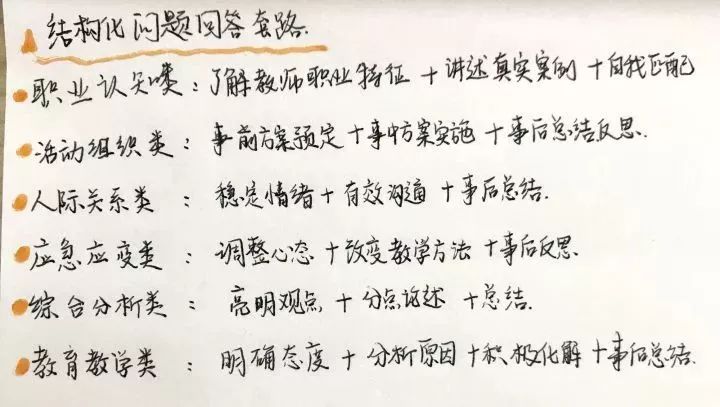 结构化问题回答套路.
职业认知类：了解教师职业特征＋讲述真实案例＋自我匹配
活动组织类：事前方案预定＋事中方案实施＋事后总结反思.
人际关系类：稳定情绪＋有效沟通＋事后总结.
应急应变类：调整心态＋改变教学方法＋事后反思.
综合分析类：亮明观点＋分点论述＋总结.
教育教学类：明确态度＋分析原因＋积极化解＋事后总结.